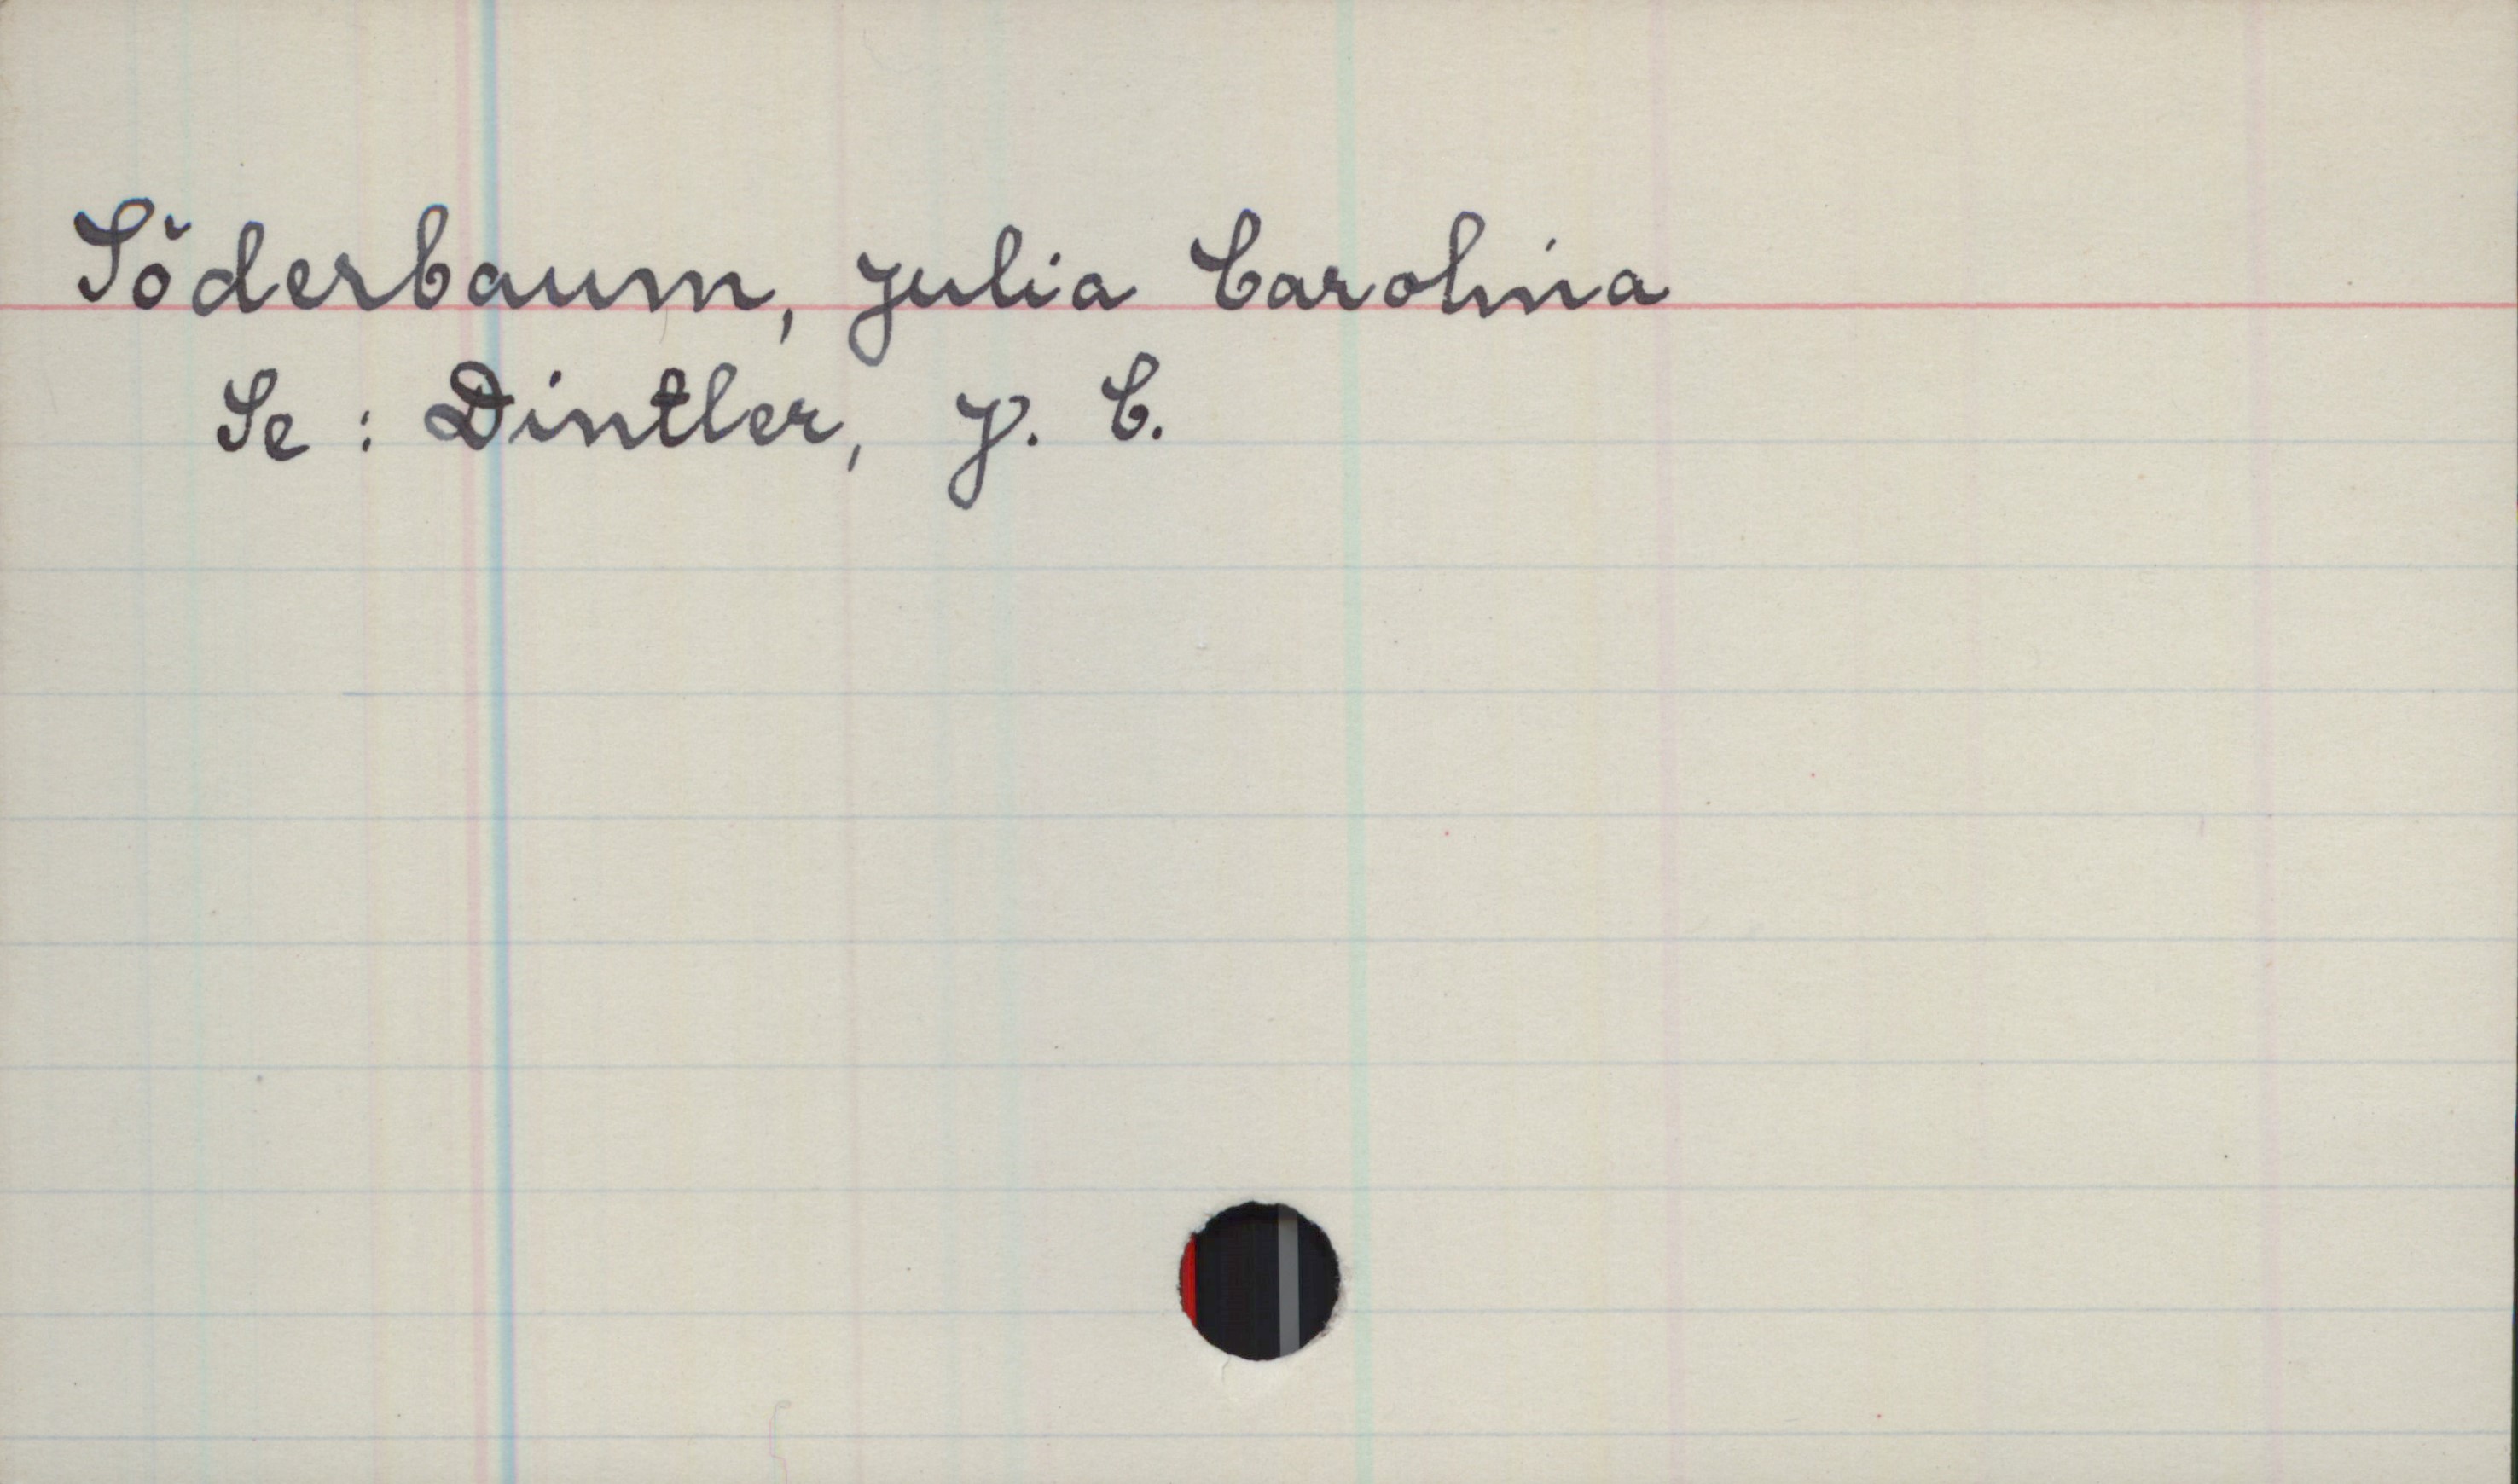 Söderbaum, Julia Carolina
Se : Dintler, J. C.